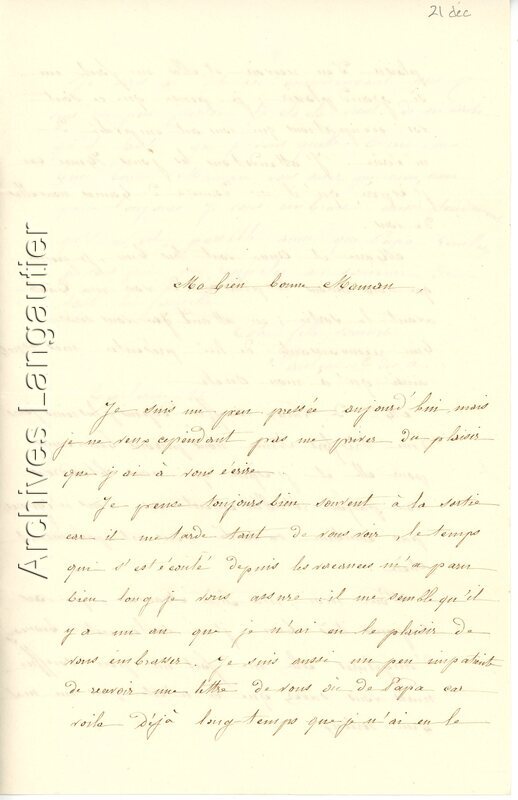 21 déc
Archives Langautier
Ma bien bonne Maman,
Je suis un peu pressée aujourd'hui mais
je ne veux cependant pas me priver du plaisir
que j'ai à vous écrire.
Je pense toujours bien souvent à la sortie
car il me tarde tant de vous voir, le temps
qui s'est écoulé depuis les vacances m'a paru
bien long je vous assure : il me semble qu'il
y a un an que je n'ai eu le plaisir de
vous embrasser. Je suis aussi un peu impatiente
de recevoir une lettre de vous où de Papa car
voila déjà long temps que je n'ai eu le